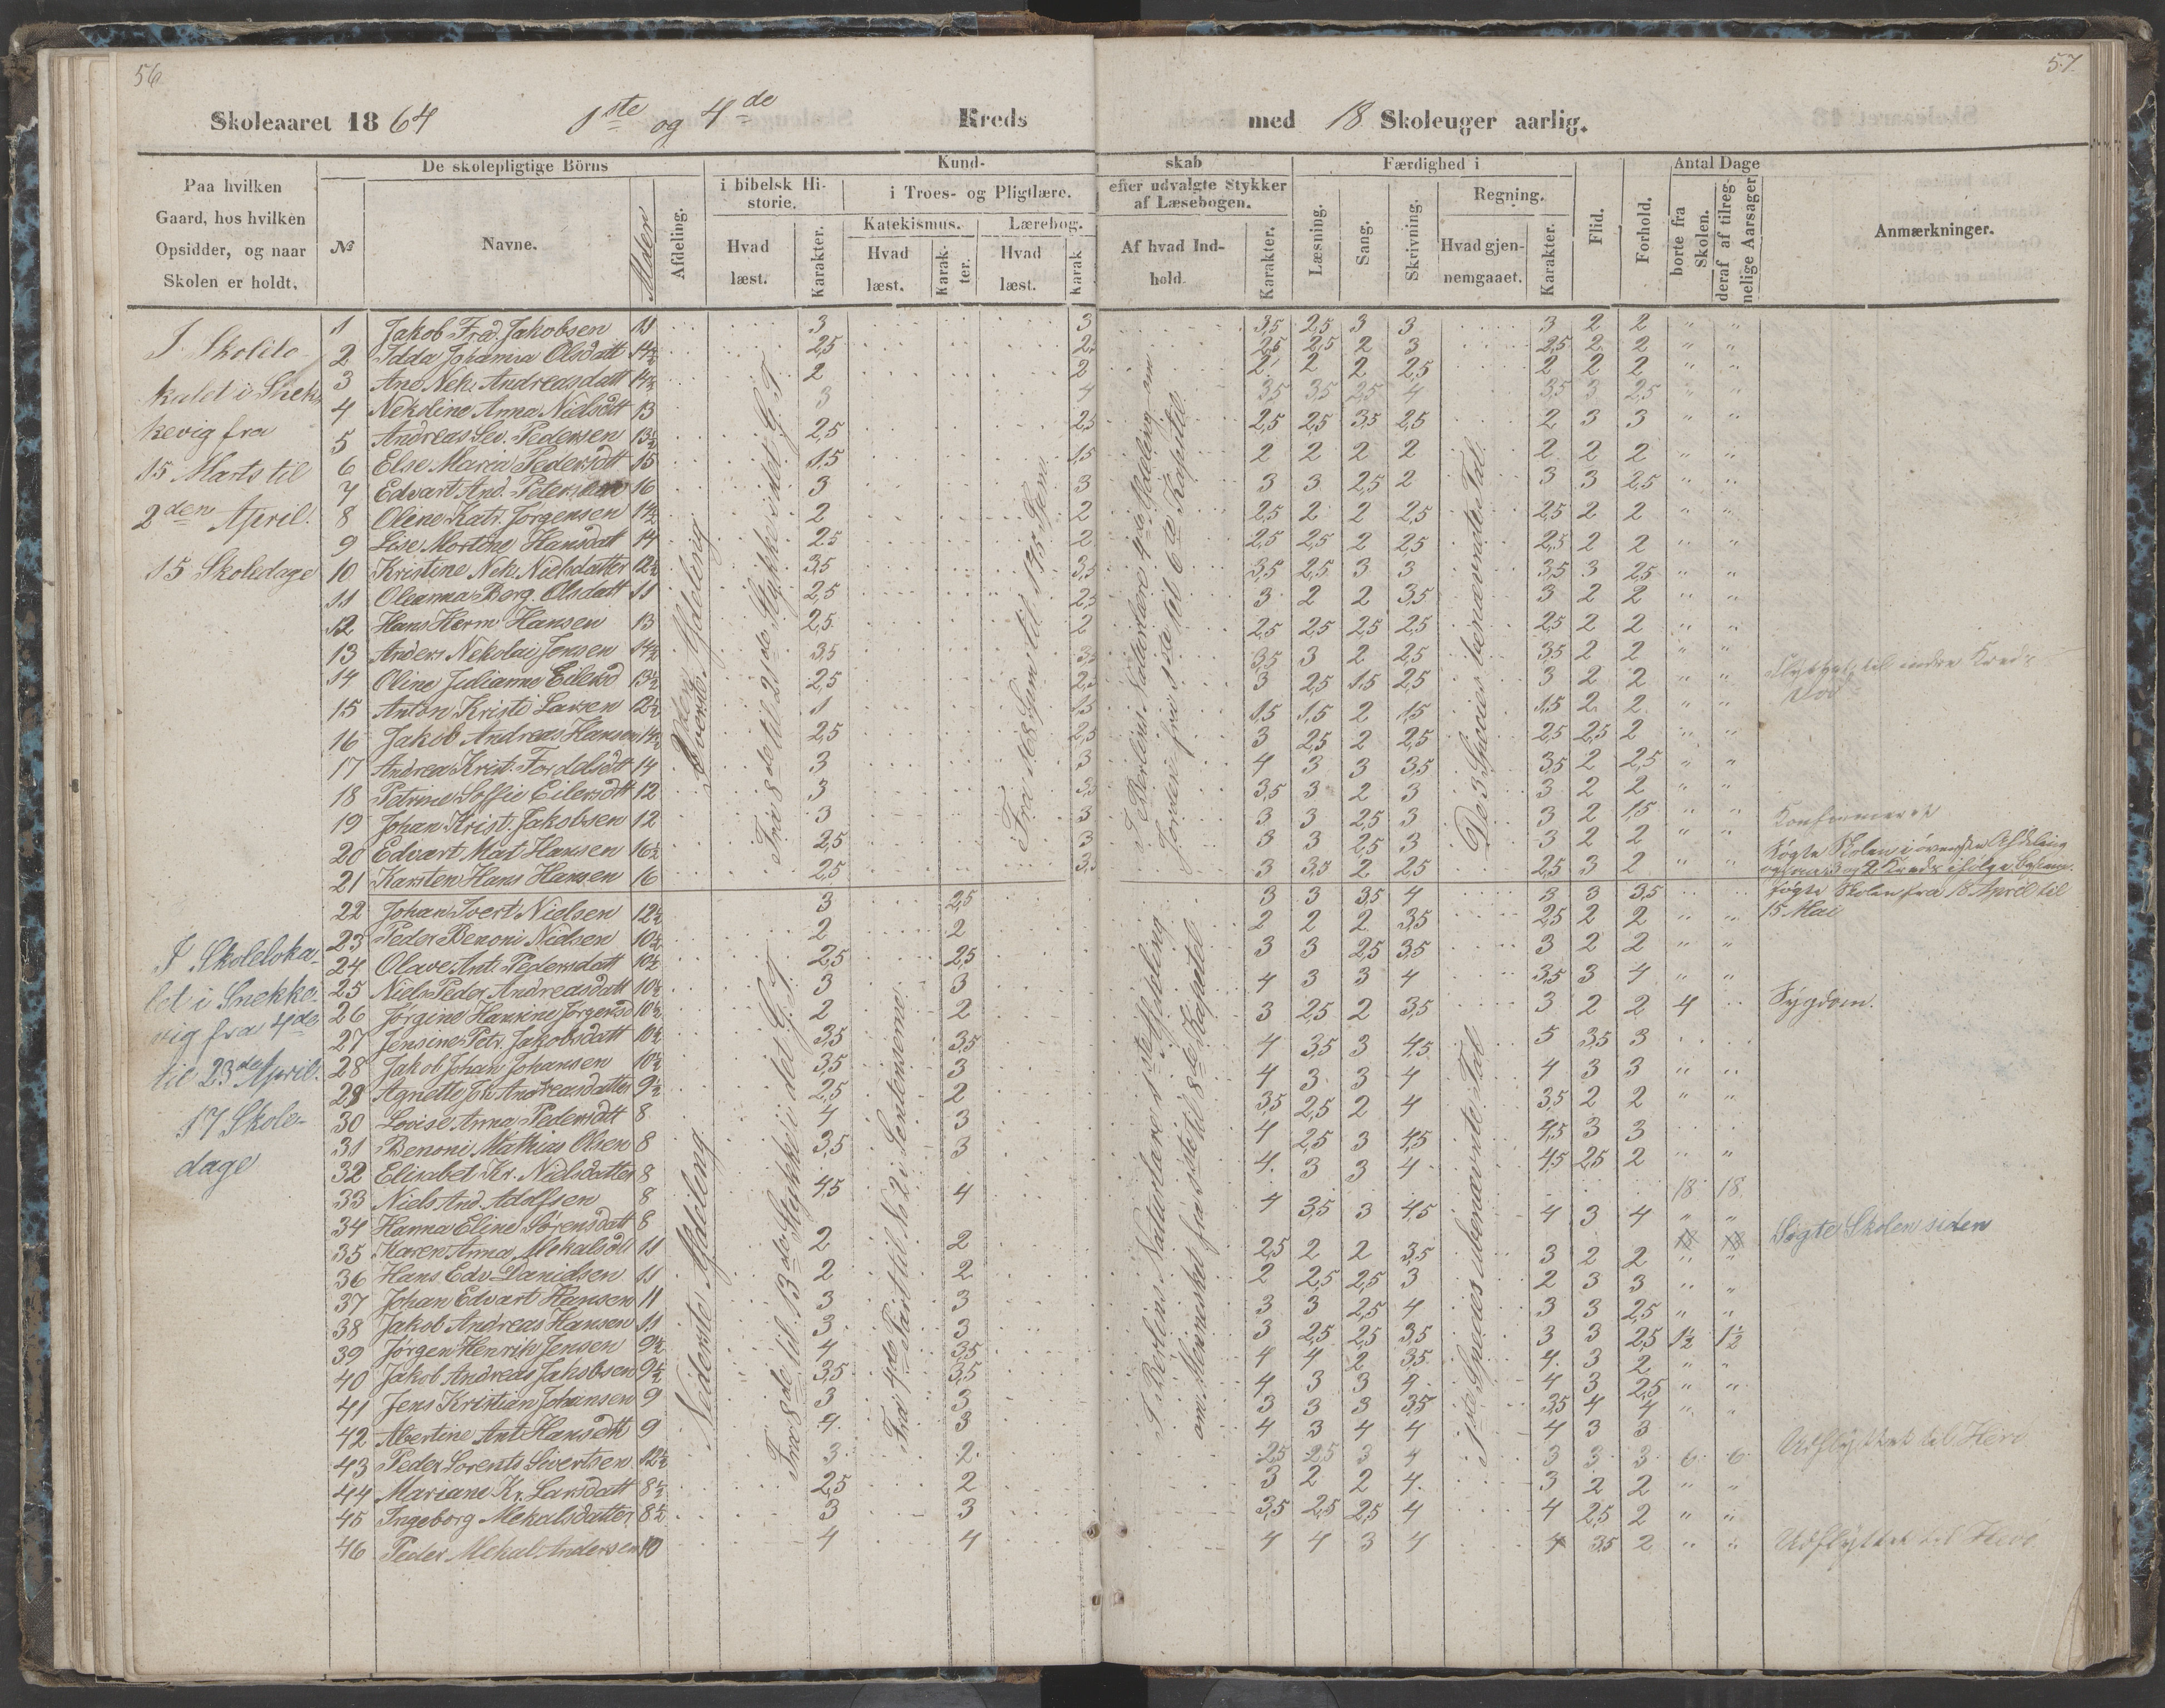 56
57
Skoleaaret 1864 1ste og 4de Kreds med 18 Skoleuger aarlig.
Paa hvilken Gaard, hos hvilken Opsidder, og naar Skolen er holdt.
De skolepligtige Börns
No
Navne.
Alderen
Afdeling.
Kundskab
i bibelsk Historie.
Hvad læst.
Karakter.
i Troes- og Pligtlære.
Katekismus.
Hvad læst.
Karakter.
Lærebog.
Hvad læst.
Karak
efter udvalgte Stykker af Læsebogen.
Af hvad Indhold.
Karakter.
Færdighed i
Læsning.
Sang.
Skrivning.
Regning.
Hvad gjennemgaaet.
Karakter.
Flid.
Forhold.
Antal Dage
borte fra Skolen.
deraf af tilregnelige Aarsager
Anmærkninger.
I Skolelo-
kalet i Snek-
kevig fra
15 Marts til
2den April.
15 Skoledage
Øverste Afdeling
Fra 8de til 21de Stykke i det G. T.
De 3 Species i benævnte Tal.
1 Jakob Fred. Jakobsen 11 3 3 3,5 2,5 3 3 3 2 2 " "
2 Idda Johanna Olsdatt 14½ 2,5 2,5 2,5 2 3 2,5 2 2 " "
3 Ane Nek. Andreasdatt 14½ 2 2 2 2 2 2,5 2 2 2 " "
4 Nekoline Anna Nielsdtt 13 3 4 3,5 3,5 2,5 4 3,5 3 2,5 " "
5 Andreas Sev. Pedersen 13½ 2,5 2,5 2,5 2,5 3,5 2,5 2 3 3 " "
6 Else Maria Pedersdtt 15 1,5 1,5 2 2 2 2 2 2 2 " "
7 Edvart And. Petersen 16 3 3 3 3 2,5 2 3 3 2,5 " "
8 Oline Katr. Jørgensen 14½ 2 2 2,5 2 2 2,5 2,5 2 2 " "
9 Lise Mortine Hansdatt 14 2,5 2 2,5 2,5 2 2,5 2,5 2 2 " "
10 Kristine Nek. Nielsdatter 12½ 3,5 3,5 3,5 2,5 3 3 3,5 3 2,5 " "
11 Oleanna Berg. Olsdatt 11 2,5 2,5 3 2 2 3,5 3 2 2 " "
12 Hans Herm Hansen 13 2,5 2 2,5 2,5 2,5 2,5 2,5 2 2 " "
13 Anders Nekolai Jensen 14½ 3,5 3,5 3,5 3 2 2,5 3,5 2 2 " "
14 Oline Julianne Eilersd 13½ 2,5 2,5 3 2,5 1,5 2,5 3 2 2 " "
15 Anton Kristi Larsen 12½ 1 1,5 1,5 1,5 2 1,5 1,5 2 2 " "
16 Jakob Andreas Hansen 14½ 2,5 2,5 3 2,5 2 2,5 2,5 2,5 2 " "
17 Andrea Krist. Tordelsdtt 14 3 3 4 3 3 3,5 3,5 2 2,5 " "
18 Petrine Soffie Eilersdtt 12 3 3,5 3,5 3 2 3 3 2 2 " "
19 Johan Krist. Jakobsen 12 3 3 3 3 2,5 3 3 2 1,5 " "
20 Edvart Mat Hansen 16½ 2,5 3 3 3 2,5 3 3 2 2 " " Konfirmeret
21 Karsten Hans Hansen 16 2,5 3,5 3 3,5 2 2,5 2,5 3 2
Søgte Skolen i øverste Afdeling
Søgte Skolen fra 18 April til
15 Mai
I Skoleloka-
let i Snekke-
vig fra 4de
til 23de April.
17 Skole-
dage
Nederste Afdeling
Fra 8de til 13de Stykke i det G. T.
Fra 4de Part til No 2 i Sentenserne.
I Berlins Naturlære 1ste Afdeling
om Mennesket fra 1ste til 8de Kapitel.
1ste Species i ubenævnte Tal
22 Johan Ivert Nielsen 12½ 3 2,5 3 3 3,5 4 3 3 3,5
23 Peder Benoni Nielsen 10½ 2 2 2 2 2 3,5 2,5 2 2 " "
24 Olave Ant. Pedersdatt 10½ 2,5 2,5 3 3 2,5 3,5 3 2 2 " "
25 Niels Peder Andreasdatt 10½ 3 3 4 3 3 4 3,5 3 4 " "
26 Jørgine Hansine Jørgensd 10½ 2 2 3 2,5 2 3,5 3 2 2 4 Sygdom.
27 Jensine Petr. Jakobsdatt 10½ 3,5 3,5 4 3,5 3 4,5 5 3,5 3
28 Jakob Johan Johansen 10½ 3,5 3 4 3 3 4 4 3 3 " "
29 Agnette Joh Andreasdatter 9½ 2,5 2 3,5 2,5 2 4 3,5 2 2 " "
30 Lovise Anna Pedersdtt 8 4 3 4 2,5 3 4,5 4,5 3 3
31 Benoni Mathias Olsen 8 3,5 3 4 3 3 4 4,5 2,5 2 " "
32 Elisabet Kr. Nielsdatter 8 18 18
33 Niels And. Adolfsen 8 4,5 4 4 3,5 3 4,5 4 3 4 " "
34 Hanna Eline Sørensdatt 8 18 18 Søgte Skolen siden
35 Karen Anna Mekalsdtt 11 2 2 2,5 2 2 3,5 3 2 2 " "
36 Hans Edv. Danielsen 11 2 2 2 2,5 2,5 3 2 3 3 " "
37 Johan Edvart Hansen 11 3 3 3 3 2,5 4 3 3 2,5 " "
38 Jakob Andreas Hansen 11 3 3 3 2,5 2,5 3,5 3 3 2,5 1½ 1½
39 Jørgen Henrik Jensen 9½ 4 3,5 4 4 2 3,5 4 3 2 " "
40 Jakob Andreas Jakobsen 9½ 3,5 3,5 4 3 3 4 4 3 2,5 " "
41 Jens Kristian Johansen 9 3 3 3 3 3 3,5 3,5 4 4 " "
42 Albertine Ant Hansdtt 9 4 3 4 3 4 4 4 3 3
43 Peder Lorents Sivertsen 12½ 3 2 2,5 2,5 3 4 3 3 3 6 6 Udflyttet til Herø
44 Mariane Kr. Larsdatt 8½ 2,5 2 3 2 2 4 3 2 2 " "
45 Ingeborg Mekalsdatter 8½ 3 3 3,5 2,5 2,5 4 4 2,5 2 " "
46 Peder Mekal Andersen 10 4 4 4 4 3 4 4 3,5 2 " " Udflyttet til Herø